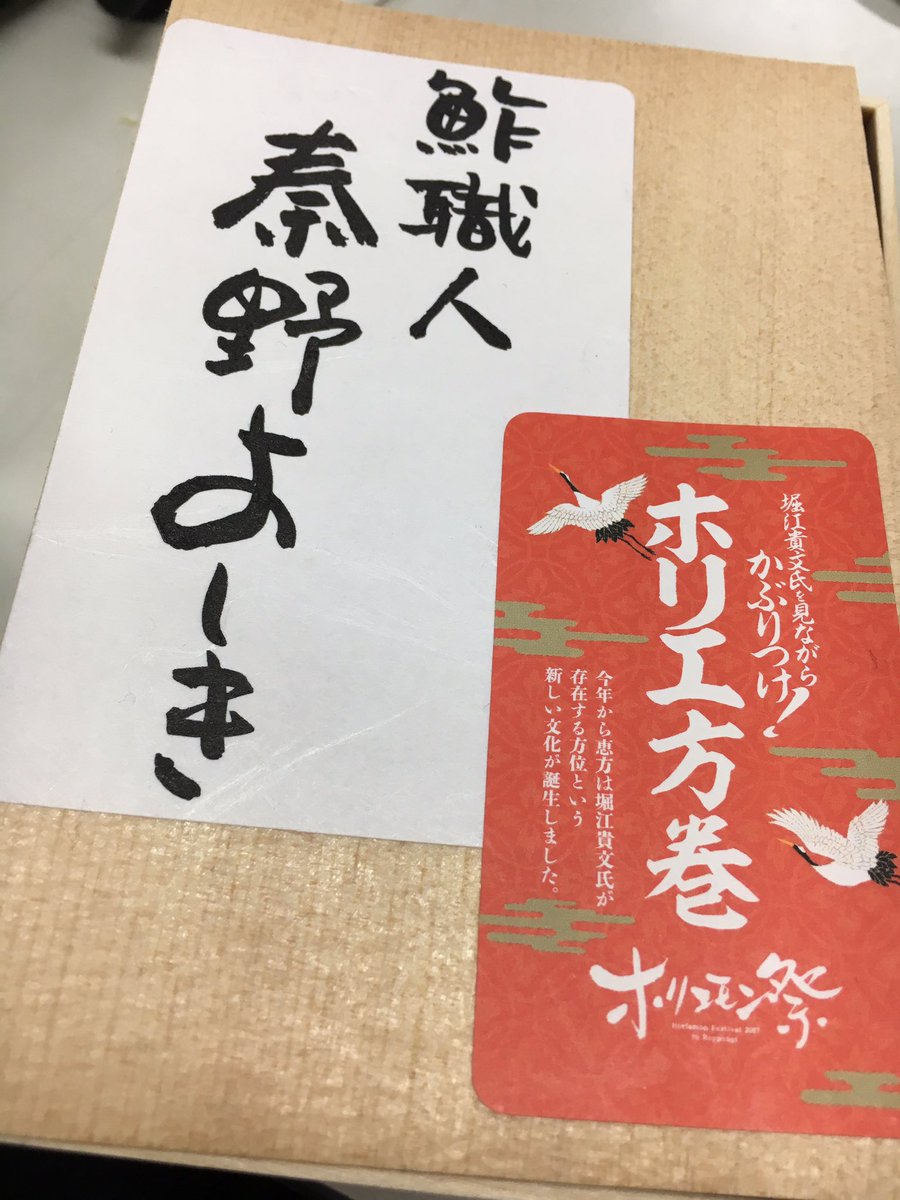 鮓職人
秦野よしき
堀江貴文氏を見ながら
かぶりつけ!
ホリエ方巻
今年から恵方は堀江貴文氏が
存在する方位という
新しい文化が誕生しました。
ホリエモン祭
Horiemon Festival 2017
in Roppongi